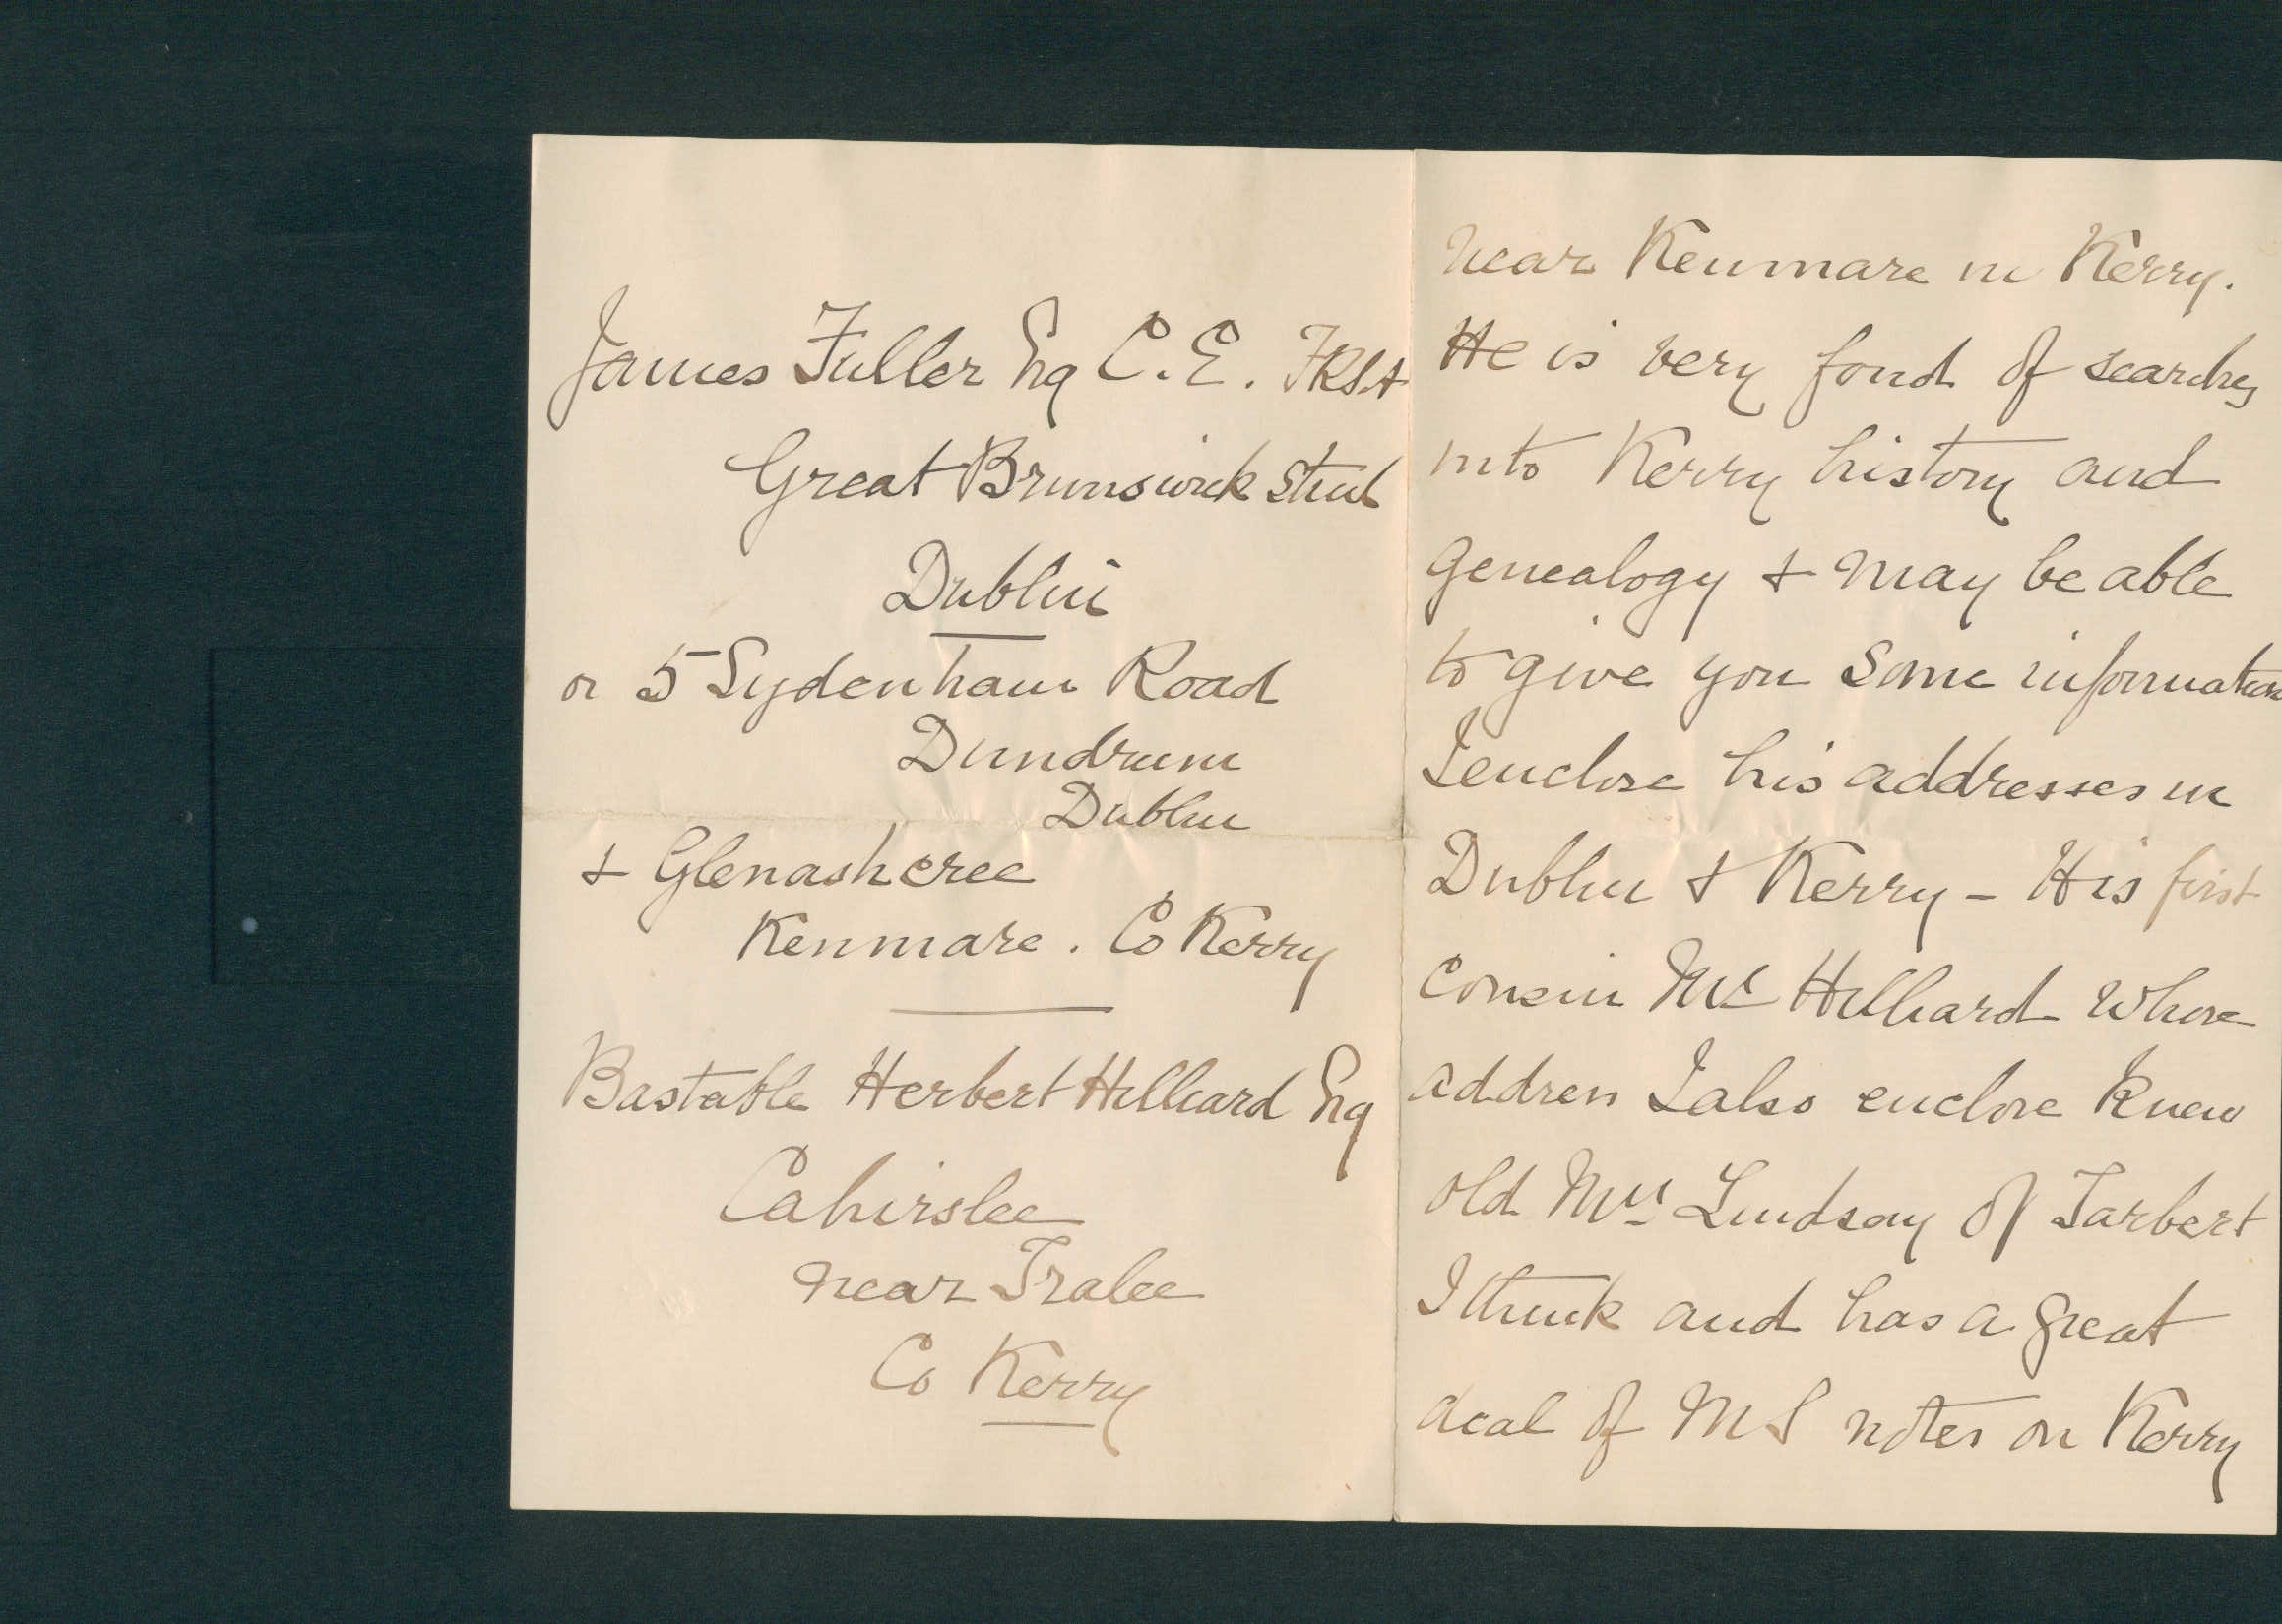 James Fuller Esq C.E. FRSA
Great Brunswick Street
Dublin
or 5 Sydenham Road
Dundrum
Dublin
& Glenashcree
Kenmare. Co Kerry
Bastable Herbert Hilliard Esq
Cahirslee
near Tralee
Co Kerry
near Kenmare in Kerry.
He is very fond of searching
into Kerry history and
genealogy & may be able
to give you some information
I enclose his addresses in
Dublin & Kerry - His first
cousin Mr Hilliard whose
address I also enclose knew
old Mrs Lindsay of Tarbert
I think and has a great
deal of MS notes on Kerry